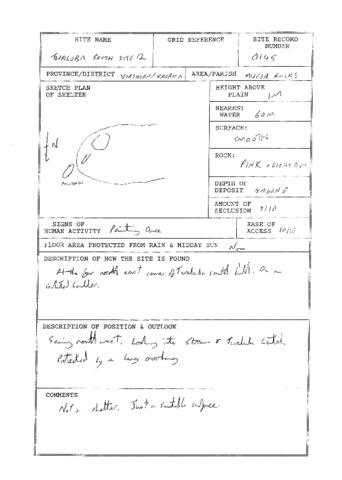 SITE NAME
GRID REFERENCE
SITE RECORD
NUMBER
SOUTH SITE 2
0145
PROVINCE/DISTRICT NORTHERN/KASAMA
AREA/PARISH MWELA ROCKS
SKETCH PLAN
OF SHELTER
N
HEIGHT ABOVE
PLAIN 1M
NEAREST
WATER 60M
SURFACE:
SMOOTH
ROCK:
PINK
DEPTH OF
DEPOSIT GROUND
AMOUNT OF
SECLUSION 3/10
SIGNS OF
HUMAN ACTIVITY Painting Once
EASE OF
ACCESS 10/10
FLOOR AREA PROTECTED FROM RAIN & MIDDAY SUN None
DESCRIPTION OF HOW THE SITE IS FOUND
At the far north east corner of south hill. On an
isolated boulder.
DESCRIPTION OF POSITION & OUTLOOK
Facing north west. Looking into Stream &
Protected by a long overhang
COMMENTS
Not a shelter. Just a suitable surface.